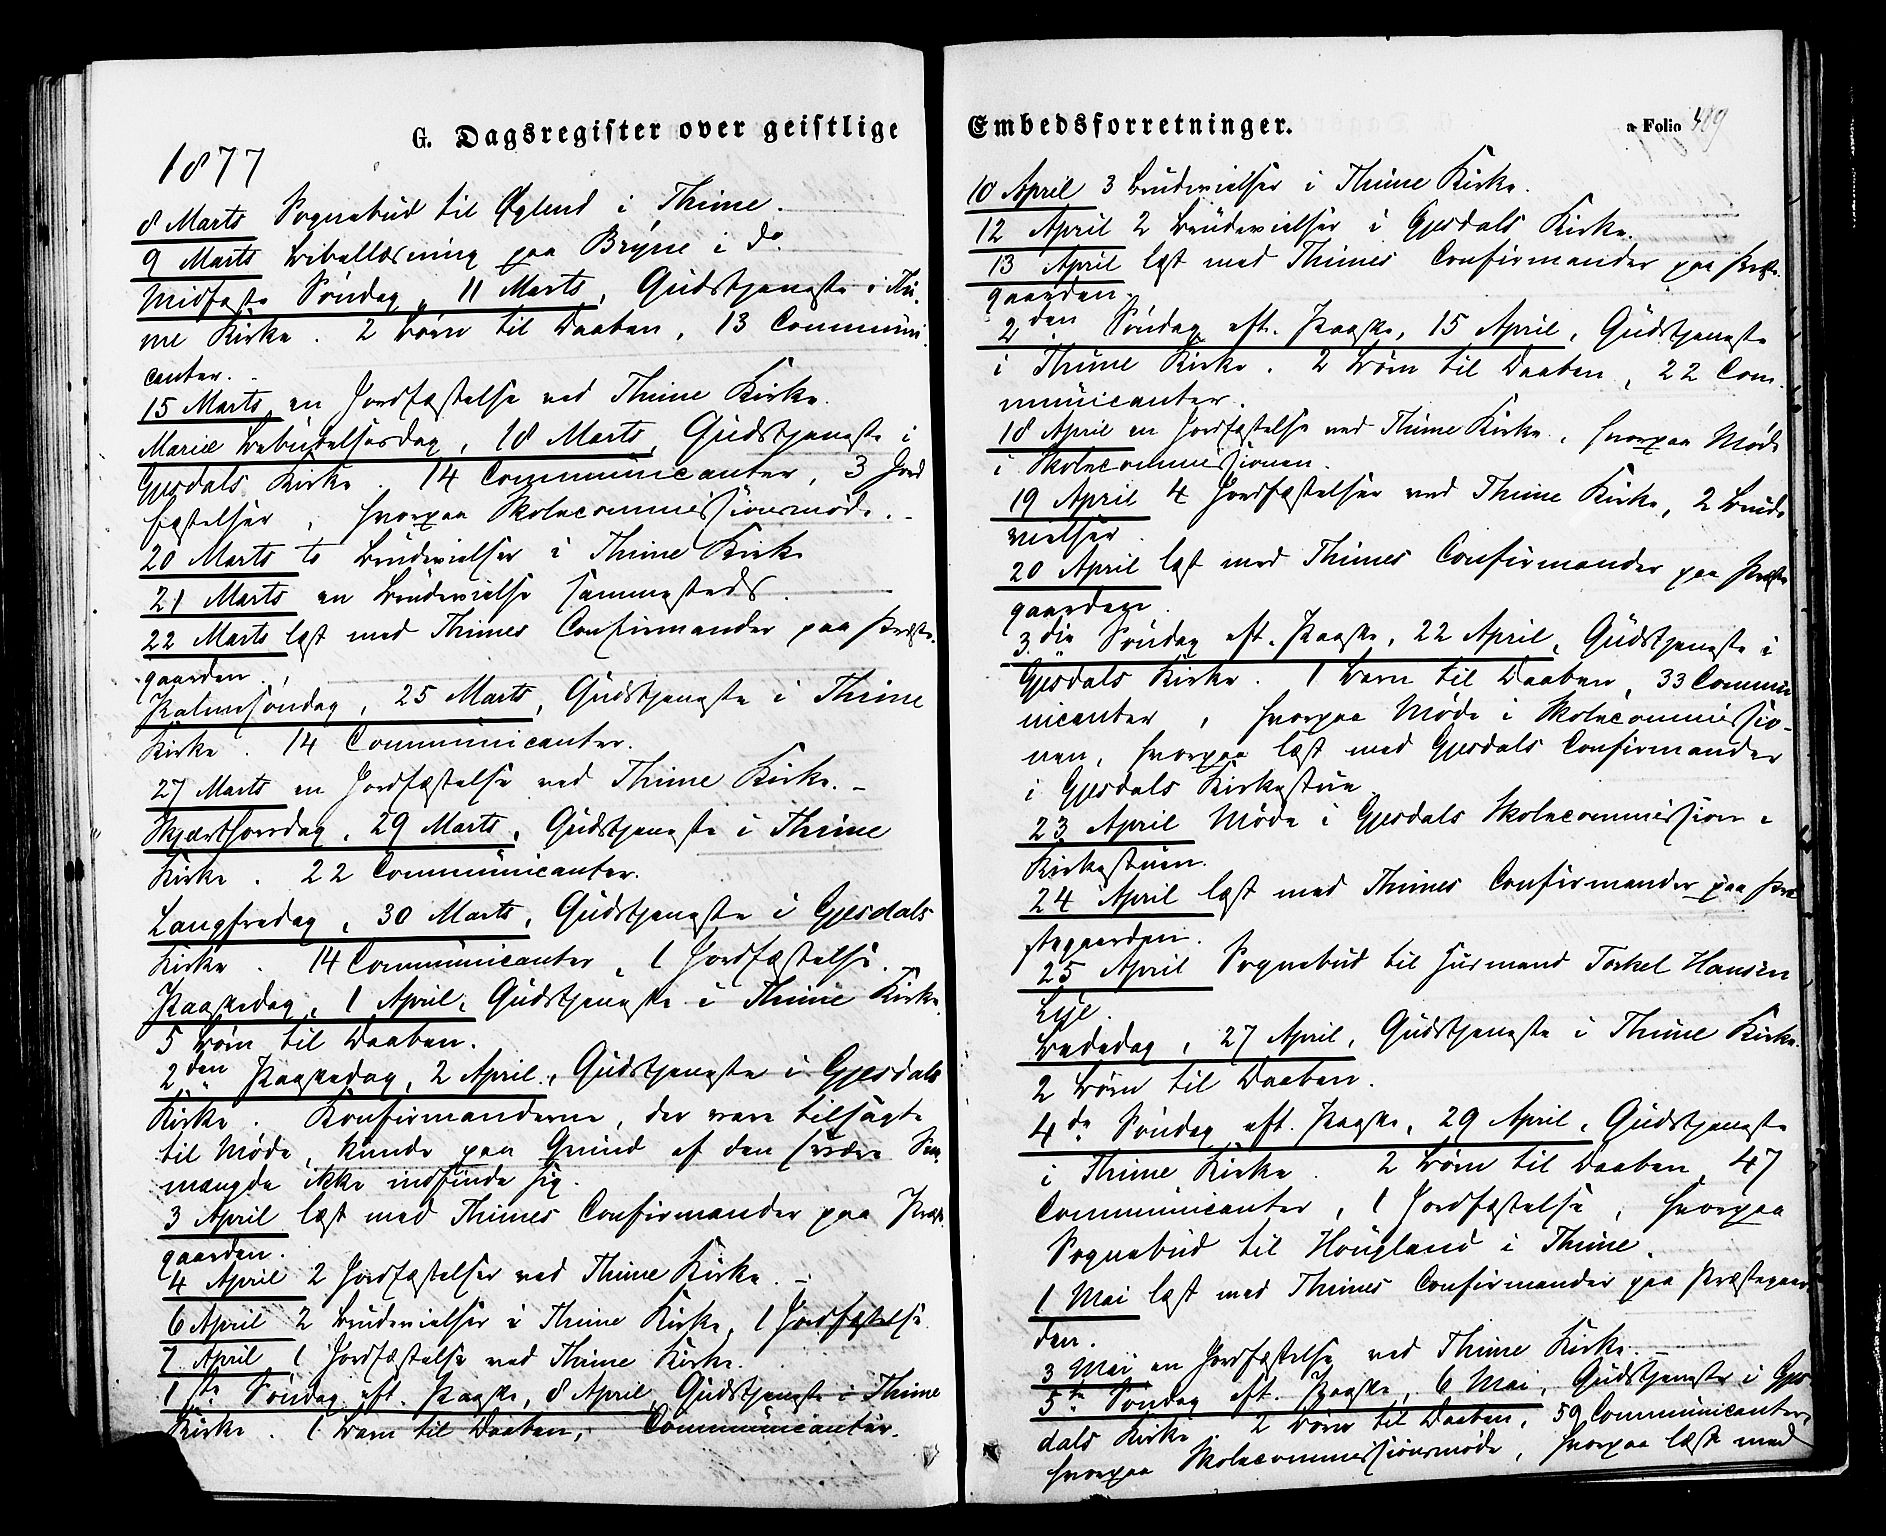 G. Dagsregister over geistlige
1877
8 Marts Sognebud til Øglend i Thime.
9 Marts Bibellæsning paa Bryne i do.
Midfaste Søndag, 11 Marts, Gudstjeneste i Thi-
me Kirke. 2 Børn til Daaben, 13 Communi-
canter.
15 Marts, en Jordfæstelse ved Thime Kirke.
Mariæ Bebudelsesdag, 18 Marts, Gudstjeneste i
Gjesdals Kirke. 14 Communicanter, 3 Jord
fæstelser, hvorpaa Skolecommissionsmøde.
20 Marts to Brudevielser i Thime Kirke
21 Marts en Brudevielse sammesteds.
22 Marts læst med Thimes Confirmander paa Præste-
gaarden.
Palmesøndag, 25 Marts, Gudstjeneste i Thime
Kirke. 14 Communicanter.
27 Marts en Jordfæstelse ved Thime Kirke.
Skjærthorsdag, 29 Marts, Gudstjeneste i Thime
Kirke. 22 Communicanter.
Langfredag, 30 Marts, Gudstjeneste i Gjesdals
Kirke. 14 Communicanter, 1 Jordfæstelse.
Paaskedag, 1 April, Gudstjeneste i Thime Kirke.
5 Børn til Daaben.
2den Paaskedag, 2 April, Gudstjeneste i Gjesdals
Kirke. Konfirmanderne, der vare tilsagte
til Møde, kunde paa Grund af den svære Sne
mængde ikke indfinde sig.
3 April læst med Thimes Confirmander paa Præste-
gaarden.
4 April 2 Jordfæstelser ved Thime Kirke.
6 April 2 Brudevielser i Thime Kirke, 1 Jordfæstelse.
7 April 1 Jordfæstelse ved Thime Kirke.
1ste Søndag eft. Paaske, 8 April, Gudstjeneste i Thime
Kirke. 1 Barn til Daaben, Communicanter.
Embedsforretninger.
a Folio 409
10 April 3 Brudevielser i Thime Kirke.
12 April 2 Brudevielser i Gjesdals Kirke.
13 April læst med Thimes Confirmander paa Præste-
gaarden.
2den Søndag eft. Paaske, 15 April, Gudstjeneste
i Thime Kirke. 2 Børn til Daaben, 22 Com-
municanter.
18 April en Jordfæstelse ved Thime Kirke, hvorpaa Møde
i Skolecommissionen.
19 April 4 Jordfæstelser ved Thime Kirke, 2 Brude
vielser.
20 April læst med Thimes Confirmander paa Præste
gaarden.
3die Søndag eft. Paaske, 22 April, Gudstjeneste i
Gjesdals Kirke. 1 Barn til Daaben, 33 Commu
nicanter, hvorpaa Møde i Skolecommissio-
nen, hvorpaa læst med Gjesdals Confirmander
i Gjesdals Kirkestue.
23 April Møde i Gjesdals Skolecommission i
Kirkestuen.
24 April læst med Thimes Confirmander paa Præ
stegaarden.
25 April Sognebud til Huusmand Torkel Hansen
Lye.
Bededag, 27 April, Gudstjeneste i Thime Kirke.
2 Børn til Daaben.
4de Søndag eft. Paaske, 29 April, Gudstjeneste
i Thime Kirke. 2 Børn til Daaben, 47
Communicanter, 1 Jordfæstelse, hvorpaa
Sognebud til Hougland i Thime.
1 Mai læst med Thimes Confirmander paa Præstegaar-
den.
3 Mai en Jordfæstelse ved Thime Kirke.
5te Søndag eft. Paaske, 6 Mai, Gudstjeneste i Gjes
dals Kirke. 2 Børn til Daaben, 59 Communicanter,
hvorpaa Skolecommissionsmøde, hvorpaa læst med